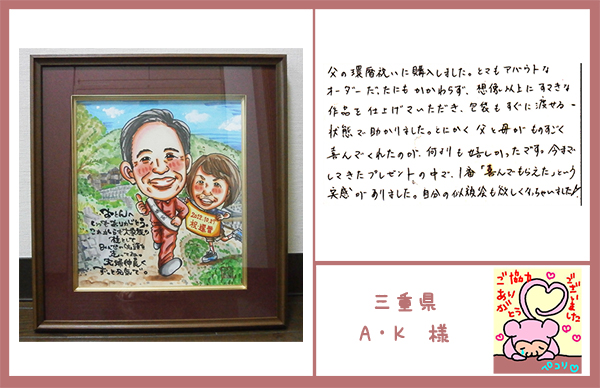 父の還暦祝いに購入しました。とてもアバウトな
オーダーだったにもかかわらず、想像以上にすてきな
作品を仕上げていただき、包装もすぐに渡せる
状態で助かりました。とにかく父と母がものすごく
喜んでくれたのが、何よりも嬉しかったです。今まで
してきたプレゼントの中で、1番「喜んでもらえた」という
実感がありました。自分の似顔絵も欲しくなっちゃいました!
2022.10.27
祝還暦
お父さんへ
いつもありがとう。
これからも
夫婦仲良く
ずっと元気で。
三重県
A・K 様
ご協力
ありがとう
ございました
ペコリ